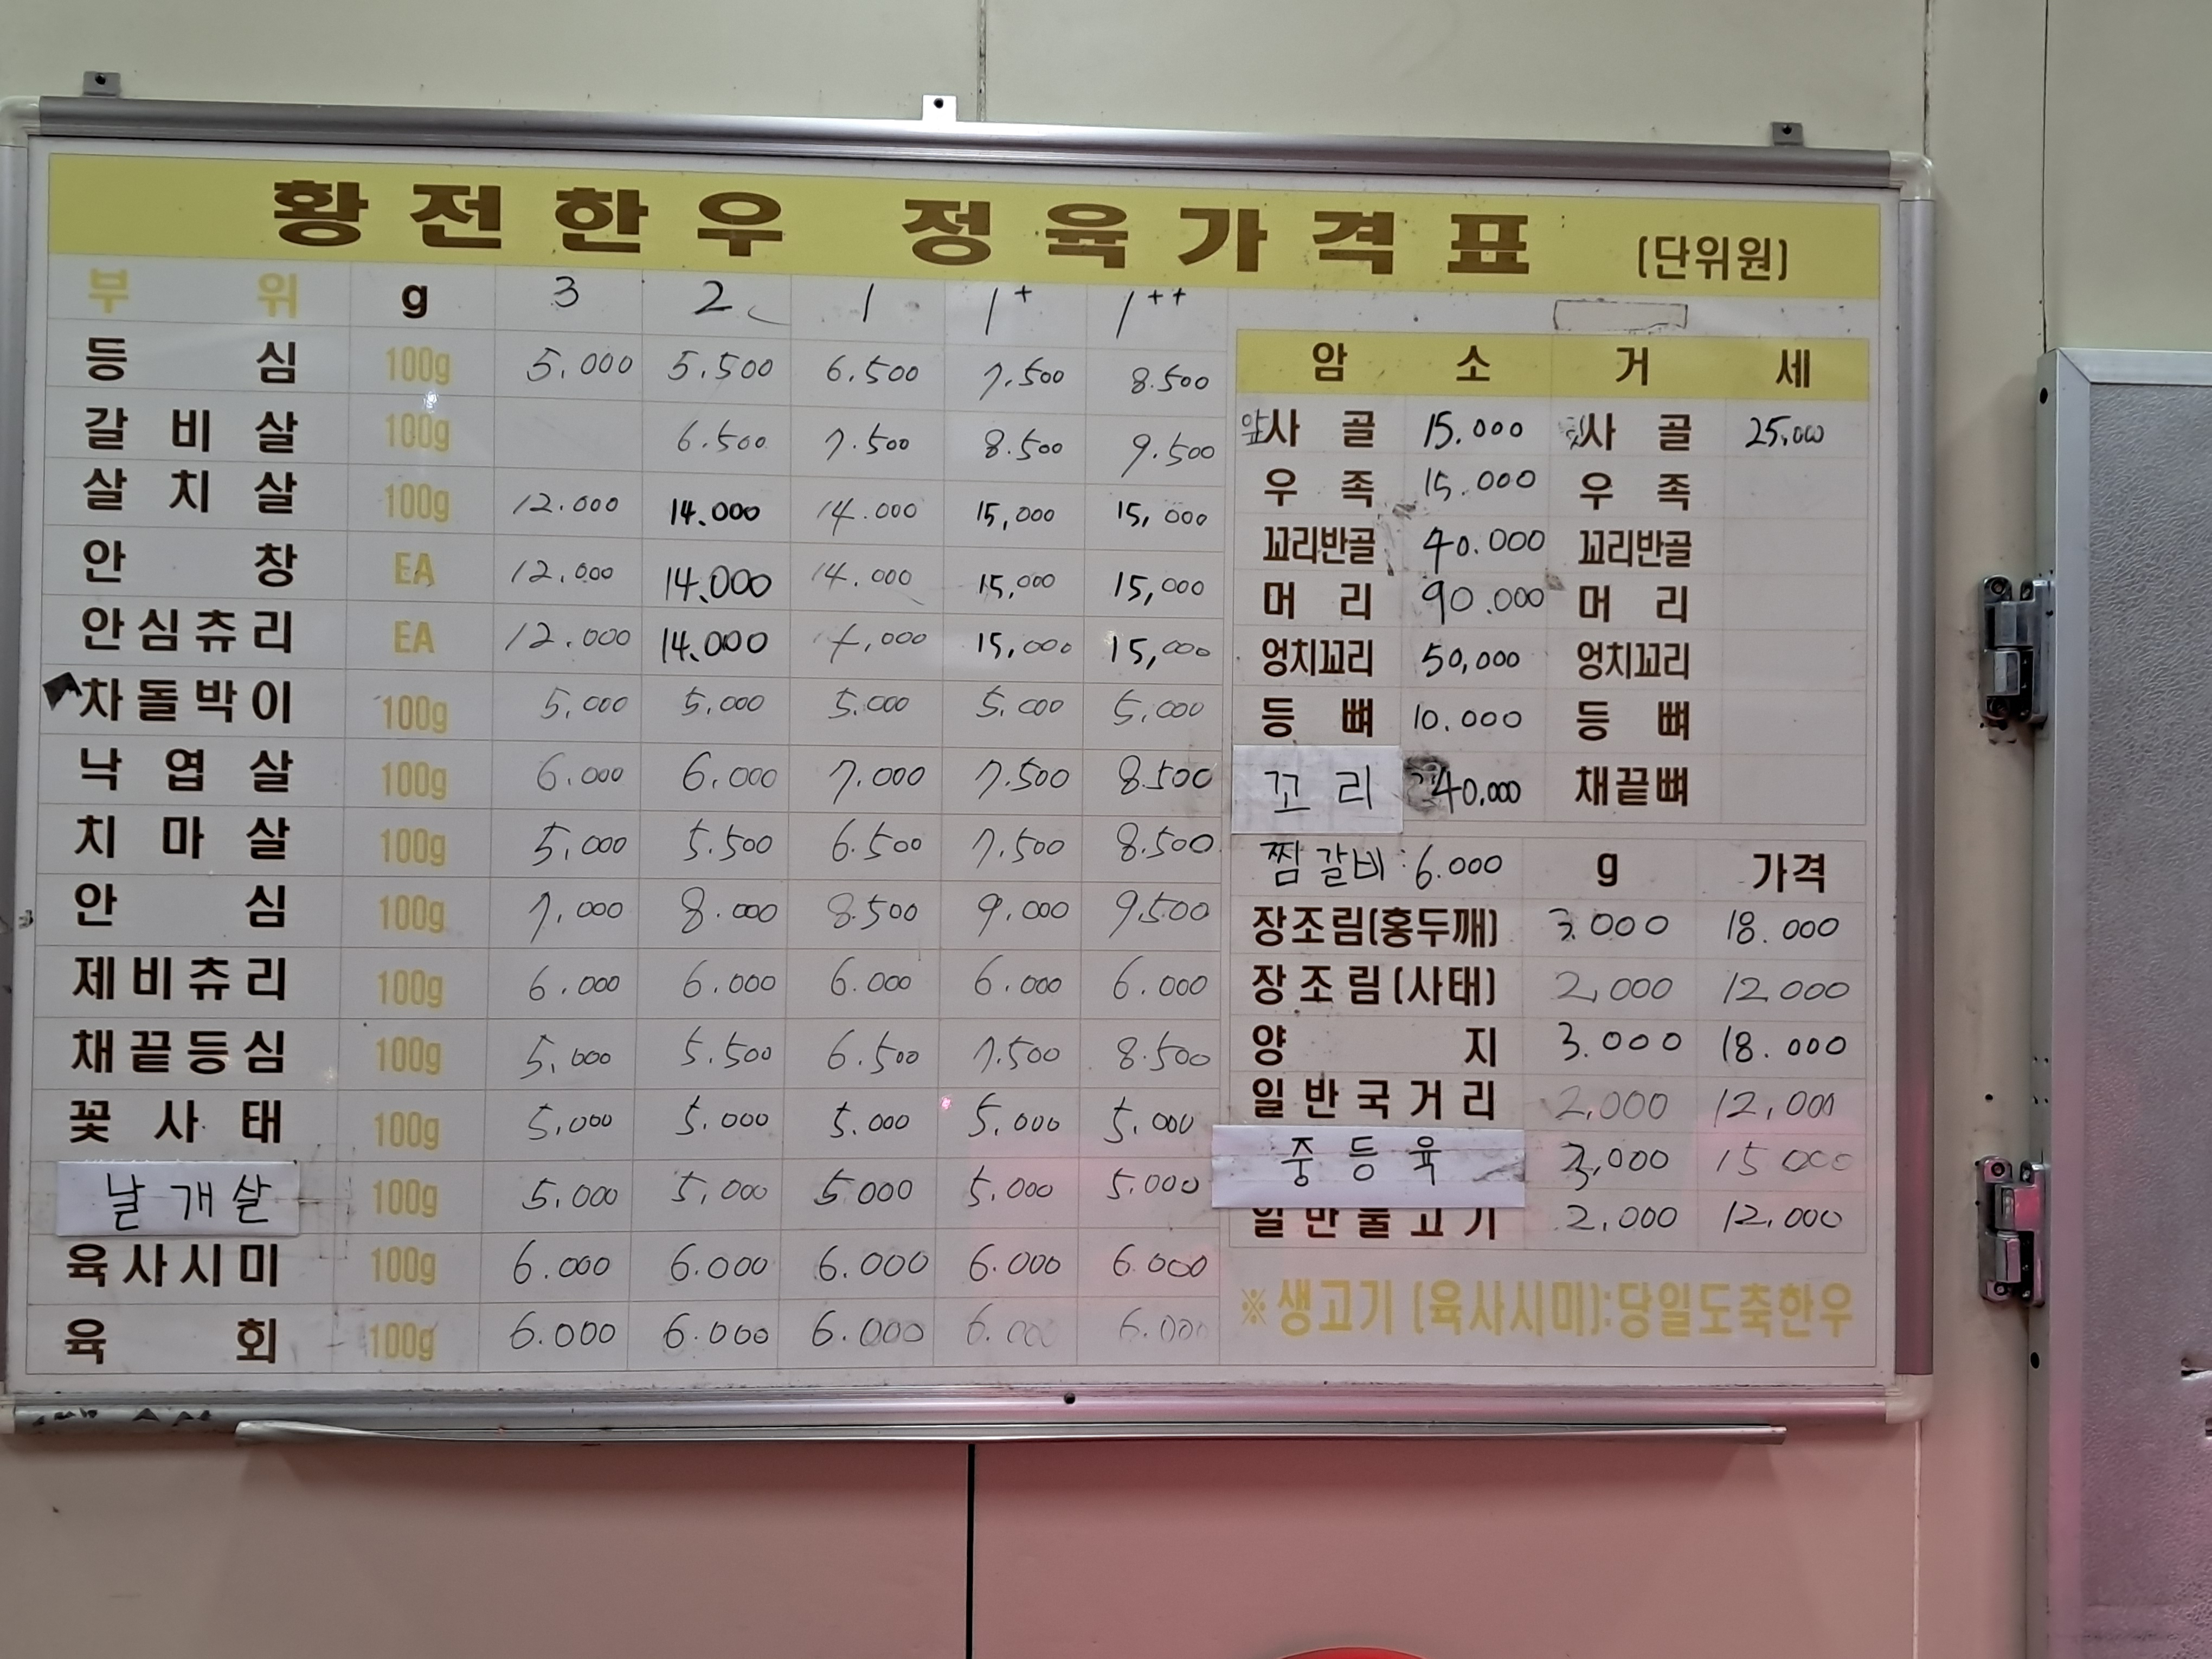 황전한우 정육가격표 (단위원)
부위 g 3 2 1 1+ 1++
등심 100g 5.000 5.500 6.500 7.500 8.500
갈비살 100g 6.500 7.500 8.500 9.500
살치살 100g 12.000 14.000 14.000 15,000 15,000
안창 EA 12.000 14.000 14.000 15,000 15,000
안심츄리 EA 12.000 14.000 15,000 15,000
차돌박이 100g 5,000 5,000 5.000 5.000 5,000
낙엽살 100g 6.000 6.000 7.000 7.500 8.500
치마살 100g 5,000 5.500 6.500 7.500 8.500
안심 100g 7,000 8.000 8.500 9,000 9,500
제비츄리 100g 6.000 6.000 6.000 6.000 6.000
채끝등심 100g 5,000 5.500 6.500 7.500 8.500
꽃사태 100g 5,000 5.000 5.000 5,000 5,000
날개살 100g 5,000 5,000 5000 5,000 5.000
육사시미 100g 6.000 6.000 6.000 6.000 6.000
육회 100g 6.000 6.000 6.000 6.000 6.000
암소 거세
앞사골 15.000 사골 25,000
우족 15.000 우족
꼬리반골 40.000 꼬리반골
머리 90.000 머리
엉치꼬리 50,000 엉치꼬리
등뼈 10.000 등뼈
꼬리 40,000 채끝뼈
찜갈비:6.000 g 가격
장조림(홍두깨) 3.000 18.000
장조림(사태) 2,000 12.000
양지 3.000 18.000
일반국거리 2,000 12,000
중등육 3,000 15000
일반불고기 2,000 12,000
※생고기(육사시미):당일도축한우